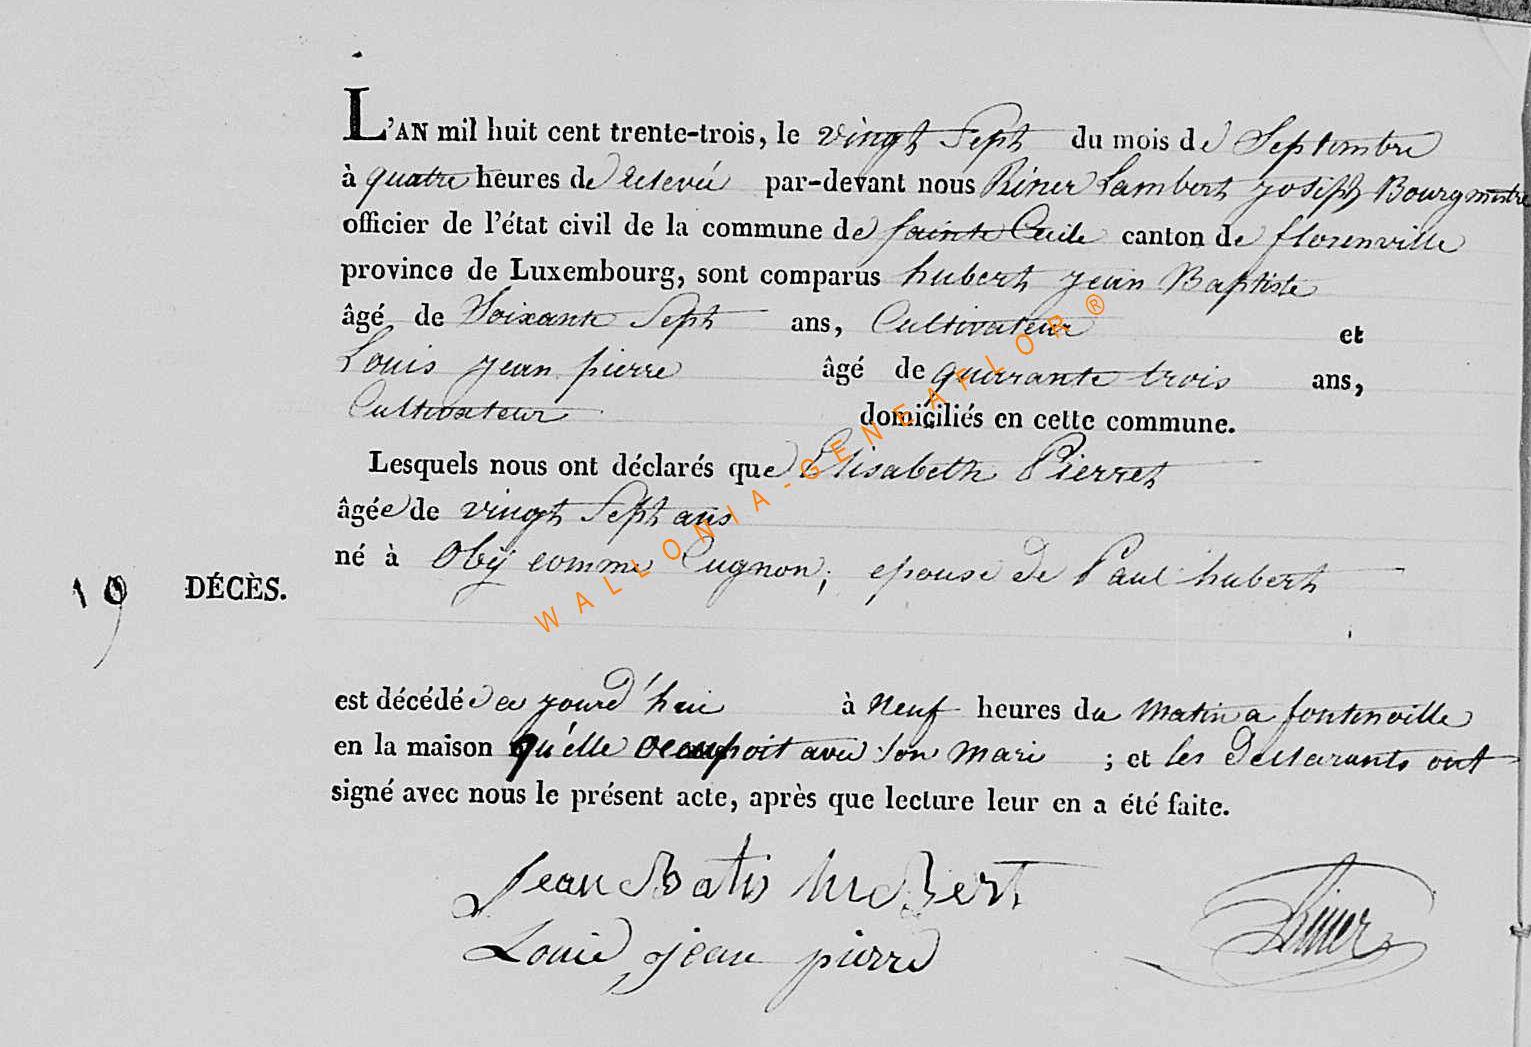 L'AN mil huit cent trente-trois, le vingt Sept du mois de Septembre
à quatre heures de relevée par-devant nous Riner Lambert joseph Bourgmestre
officier de l'état civil de la commune de sainte Cecile canton de florenville
province de Luxembourg, sont comparus hubert jean Baptiste
âgé de Soixante Sept ans, Cultivateur et
Louis jean pierre âgé de quarrante trois ans,
Cultivateur domiciliés en cette commune.
Lesquels nous ont déclarés que Elisabeth Pierret
âgée de vingt Sept ans
né à Obÿ comme Cugnon, epouse de Paul hubert
19 DÉCÈS.
est décédée ce jourd'hui à neuf heures du matin a fontenville
en la maison qu'elle occupoit avec son mari ; et les declarants ont
signé avec nous le présent acte, après que lecture leur en a été faite.
Jean Batis huBert
Louis jean pierre
Riner
WALLONIA-GENEAFLOR ®